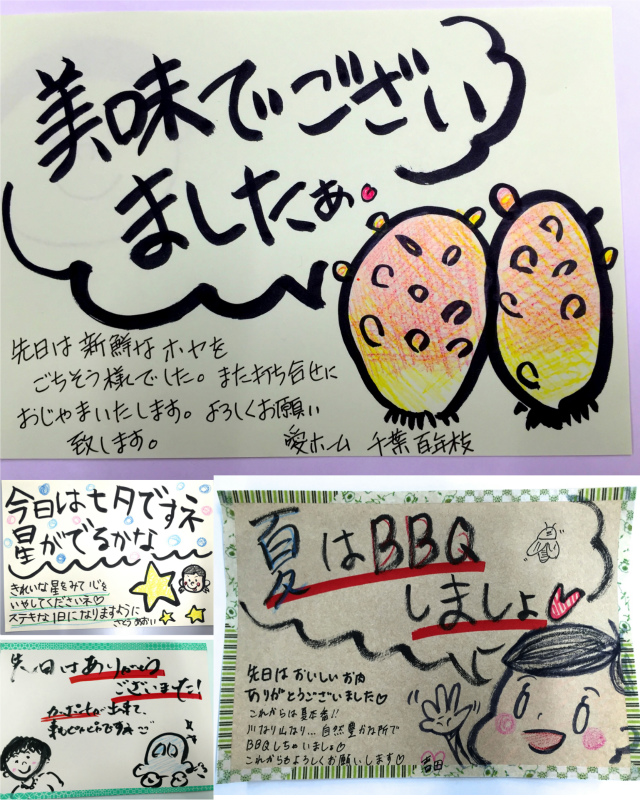 美味でござい
ましたぁ
先日は新鮮なホヤを
ごちそう様でした。また打ち合せに
おじゃまいたします。よろしくお願い
致します。
愛ホーム 千葉百年枝
今日は七夕ですネ
星がでるかな
きれいな星をみて心を
いやしてくださいネ♡
ステキな1日になりますように
さとう あおい
先日はありがとう
ございました!
出来て、
夏はBBQ
しましょ
先日はおいしいお肉
ありがとうございました♡
これからは夏本番!!
川なり山なり...自然豊かな所で
BBQしちゃいましょ♡
これからもよろしくお願いします♡
吉田